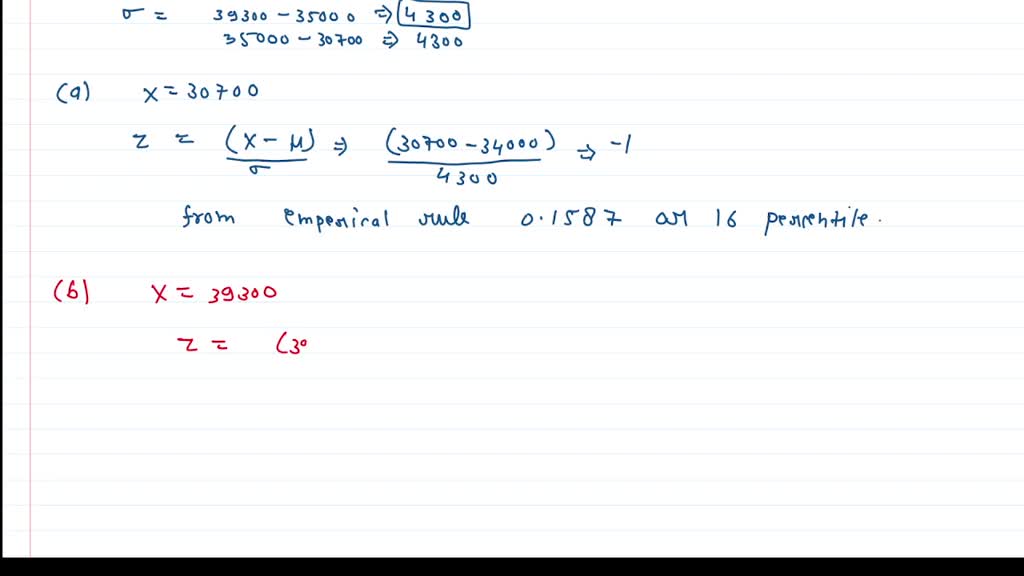 σ = 39300 - 35000 ⇒ 4300
35000 - 30700 ⇒ 4300
(a) x = 30700
z = (x - μ)/σ ⇒ (30700 - 34000)/4300 ⇒ -1
from emperical rule 0.1587 or 16 percentile.
(b) x = 39300
z = (30